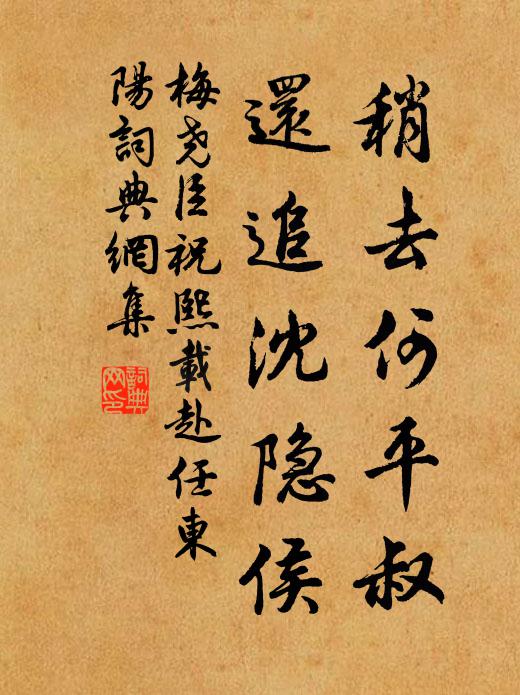 稍去何平叔
還追沈隐侯
梅尧臣祝熙載赴任東
陽詞典網集
詞典
网印